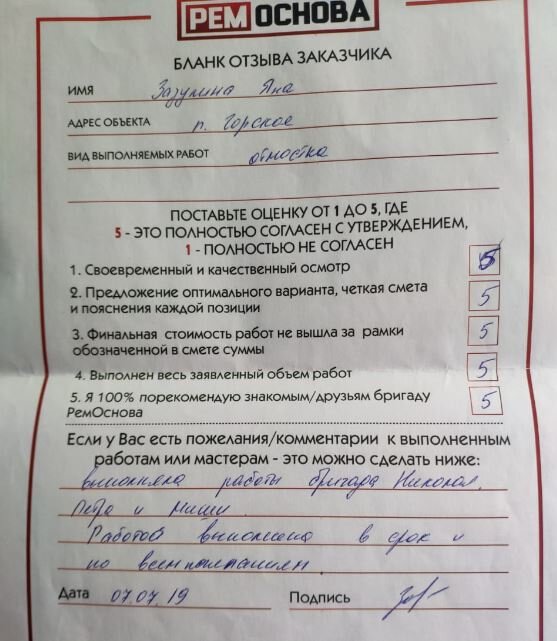 РЕМ ОСНОВА
БЛАНК ОТЗЫВА ЗАКАЗЧИКА
ИМЯ Зазулина Яна
АДРЕС ОБЪЕКТА п. Горское
ВИД ВЫПОЛНЯЕМЫХ РАБОТ отмостка
ПОСТАВЬТЕ ОЦЕНКУ ОТ 1 ДО 5, ГДЕ
5 - ЭТО ПОЛНОСТЬЮ СОГЛАСЕН С УТВЕРЖДЕНИЕМ,
1 - ПОЛНОСТЬЮ НЕ СОГЛАСЕН
1. Своевременный и качественный осмотр 5
2. Предложение оптимального варианта, четкая смета
и пояснения каждой позиции 5
3. Финальная стоимость работ не вышла за рамки
обозначенной в смете суммы 5
4. Выполнен весь заявленный объем работ 5
5. Я 100% порекомендую знакомым/друзьям бригаду
РемОснова 5
Если у Вас есть пожелания/комментарии к выполненным
работам или мастерам - это можно сделать ниже:
выполняла работы бригада Николая,
Петра и Миши.
Работа выполнена в срок и
по всем
Дата 07.07.19 Подпись